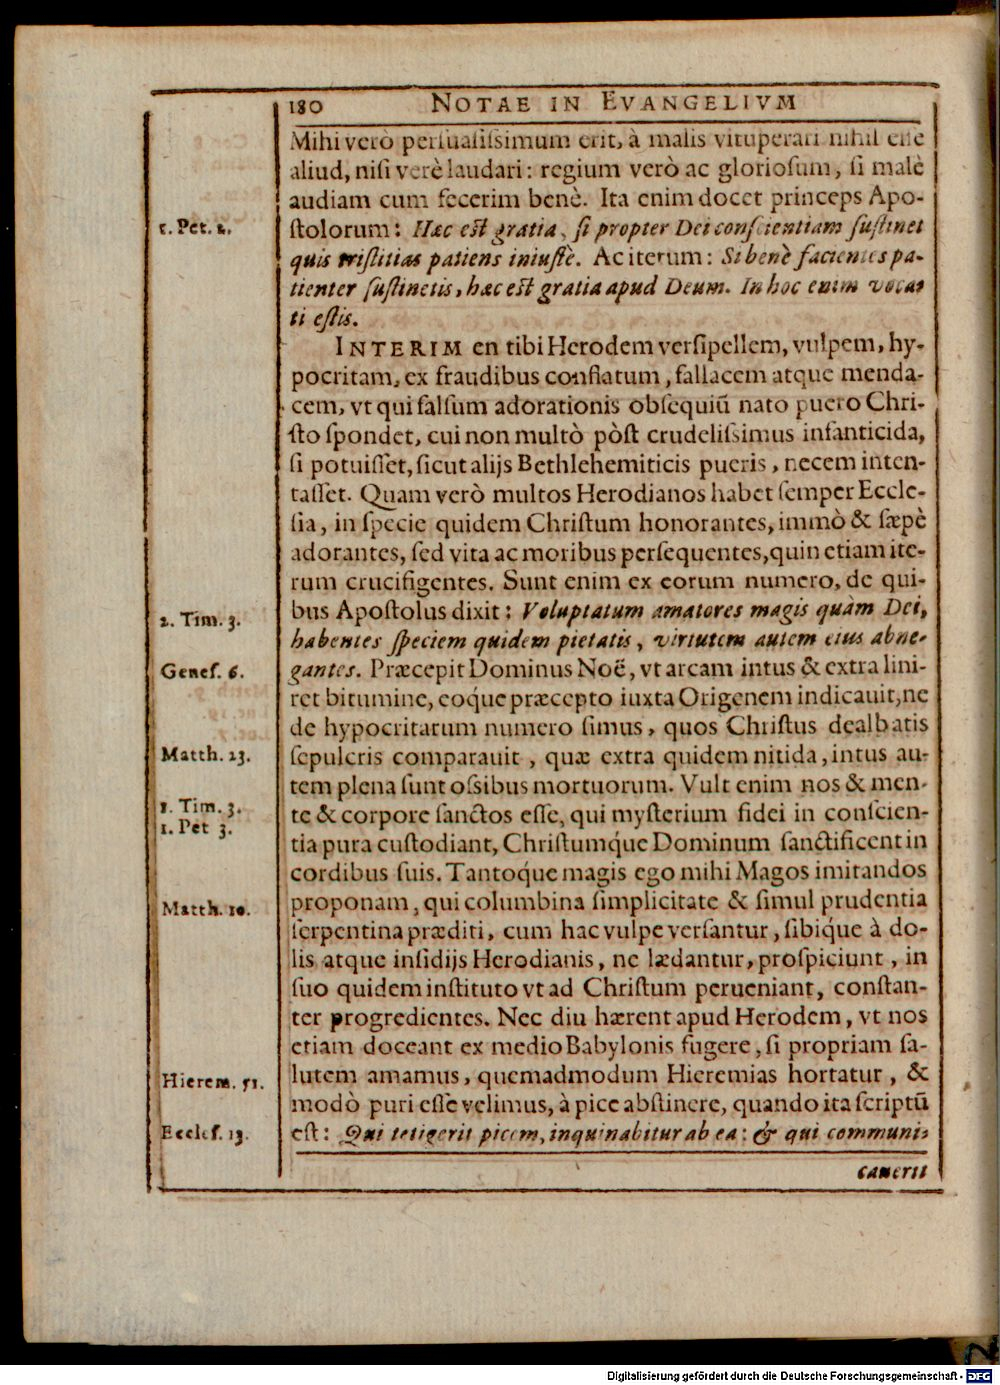 180 NOTAE IN EVANGELIVM
Mihi verò persuasissimum erit, à malis vituperari nihil esse
aliud, nisi verè laudari: regium verò ac gloriosum, si malè
audiam cum fecerim benè. Ita enim docet princeps Apo-
1. Pet. 2.
stolorum: Hæc est gratia, si propter Dei conscientiam sustinet
quis tristitias patiens iniustè. Ac iterum: Si benè facientes pa-
tienter sustinetis, hæc est gratia apud Deum. In hoc enim voca-
ti estis.
INTERIM en tibi Herodem versipellem, vulpem, hy-
pocritam, ex fraudibus conflatum, fallacem atque menda-
cem, vt qui falsum adorationis obsequiũ nato puero Chri-
sto spondet, cui non multò pòst crudelissimus infanticida,
si potuisset, sicut alijs Bethlehemiticis pueris, necem inten-
tasset. Quam verò multos Herodianos habet semper Eccle-
sia, in specie quidem Christum honorantes, immò & sæpè
adorantes, sed vita ac moribus persequentes, quin etiam ite-
rum crucifigentes. Sunt enim ex eorum numero, de qui-
2. Tim. 3.
bus Apostolus dixit: Voluptatum amatores magis quàm Dei,
habentes speciem quidem pietatis, virtutem autem eius abne-
Genes. 6.
gantes. Præcepit Dominus Noë, vt arcam intus & extra lini-
ret bitumine, eoque præcepto iuxta Origenem indicauit, ne
de hypocritarum numero simus, quos Christus dealbatis
Matth. 23.
sepulcris comparauit, quæ extra quidem nitida, intus au-
tem plena sunt ossibus mortuorum. Vult enim nos & men-
1. Tim. 3.
te & corpore sanctos esse, qui mysterium fidei in conscien-
1. Pet 3.
tia pura custodiant, Christumq́ue Dominum sanctificent in
cordibus suis. Tantoq́ue magis ego mihi Magos imitandos
Matth. 10.
proponam, qui columbina simplicitate & simul prudentia
serpentina præditi, cum hac vulpe versantur, sibiq́ue à do-
lis atque insidijs Herodianis, ne lædantur, prospiciunt, in
suo quidem instituto vt ad Christum perueniant, constan-
ter progredientes. Nec diu hærent apud Herodem, vt nos
etiam doceant ex medio Babylonis fugere, si propriam sa-
Hierem. 51.
lutem amamus, quemadmodum Hieremias hortatur, &
modò puri esse velimus, à pice abstinere, quando ita scriptũ
Eccles. 13.
est: Qui tetigerit picem, inquinabitur ab ea: & qui communi-
cauerit
Digitalisierung gefördert durch die Deutsche Forschungsgemeinschaft - DFG